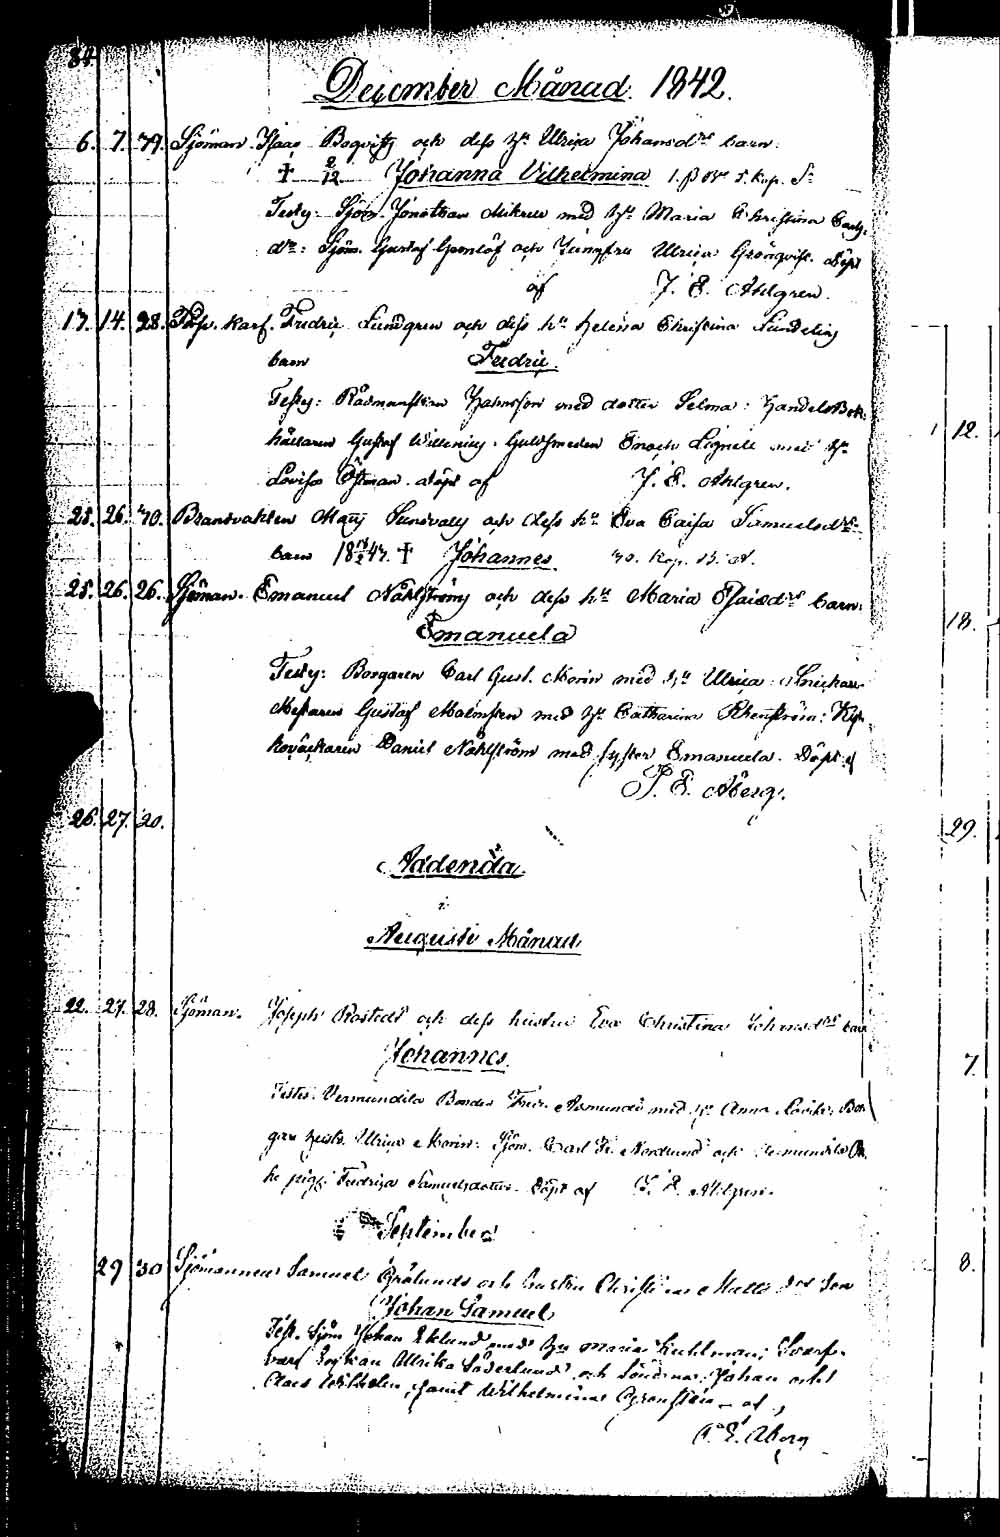 84
December Månad. 1842.
6. 7. 79. Sjöman Isaac Bogvitz och dess Hu Ulrica Johansdr barn
† 2/12 Johanna Vilhelmina
Test: Sjöm. Jonathan Mikru med Hu Maria Christina
dr: Sjöm. Gustaf Grenlöf och Jungfru Ulrica Grönqvist. Döpt
af J. E. Ahlgren.
13. 14. 28. Karl. Fredric Lundgren och dess hu Helena Christina Sundelin
barn Fredric.
Test: Rådmanskan med doter Selma: HandelsBok
hållaren Gustaf Willenius. Guldsmeden Enoch Lignell med hu
Lovisa Östman. döpt af J. E. Ahlgren.
25. 26. 40. Brandvakten Matts Sundvall och dess hu Eva Caisa Samuelsdr
barn 18 43. † Johannes. Kop. B. A.
25. 26. 26. Sjöman. Emanuel Nåhlström och dess hu Maria Esaiædr barn:
Emanuela
Test: Borgaren Carl Gust. Morin med Hu Ulrica: Snickare
Mästaren Gustaf Malmsten med Hu Catharina Rhenström:
Daniel Nåhlström med syster Emanuela. Döpt af
P. E. Åberg.
26. 27. 20.
Addenda
i
Augusti Månad
22. 27. 28. Sjöman. Joseph Rastedt och dess hustru Eva Christina Johansdr barn
Johannes.
Testes. Vermundila Bonden Fredr. Asmunds med Hu Anna Lovisa, Bor
gare Ulrica Morin: Sjöm. Carl Fr. Nordlund och
pig. Fredrica Samuelsdotter. Döpt af J. E. Ahlgren.
September
29 30 Sjömannen Samuel Grålunds och hustru Christina Matts dot Son
Johan Samuel
Test. Sjöm Johan Eklund med Hu Maria Kuhlman; Skarf-
varf Enkan Ullrika Söderlund och Sönerna Johan och
Claes Wilhelm, samt Wilhelmina Grönsten - af
P. E. Åberg
12.
18.
29.
7.
8.